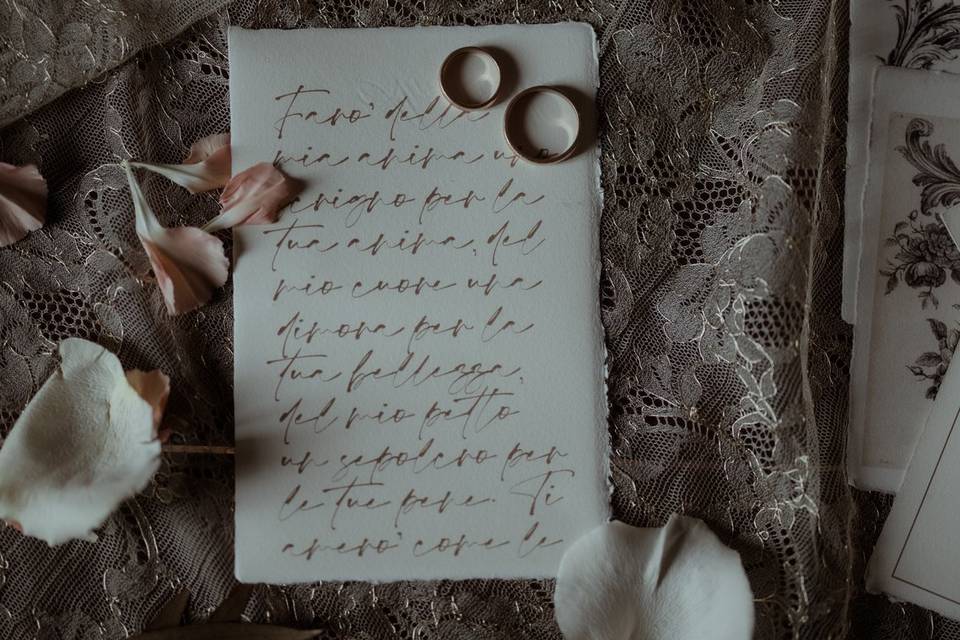 Farò della
mia anima un
scrigno per la
tua anima, del
mio cuore una
dimora per la
tua bellezza,
del mio petto
un sepolcro per
le tue pene. Ti
amerò come le